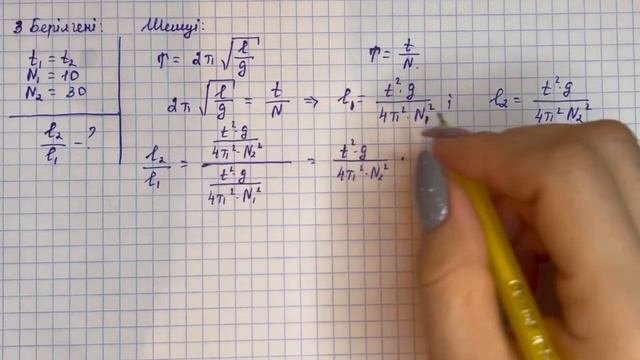 3 Берілгені:
t₁ = t₂
N₁ = 10
N₂ = 30
l₂/l₁ - ?
Шешуі:
T = 2π√(l/g)
T = t/N
2π√(l/g) = t/N ⇒ l₁ = t²·g/(4π²·N₁²) ; l₂ = t²·g/(4π²·N₂²)
l₂/l₁ = (t²·g/(4π²·N₂²))/(t²·g/(4π²·N₁²)) = t²·g/(4π²·N₂²) ·